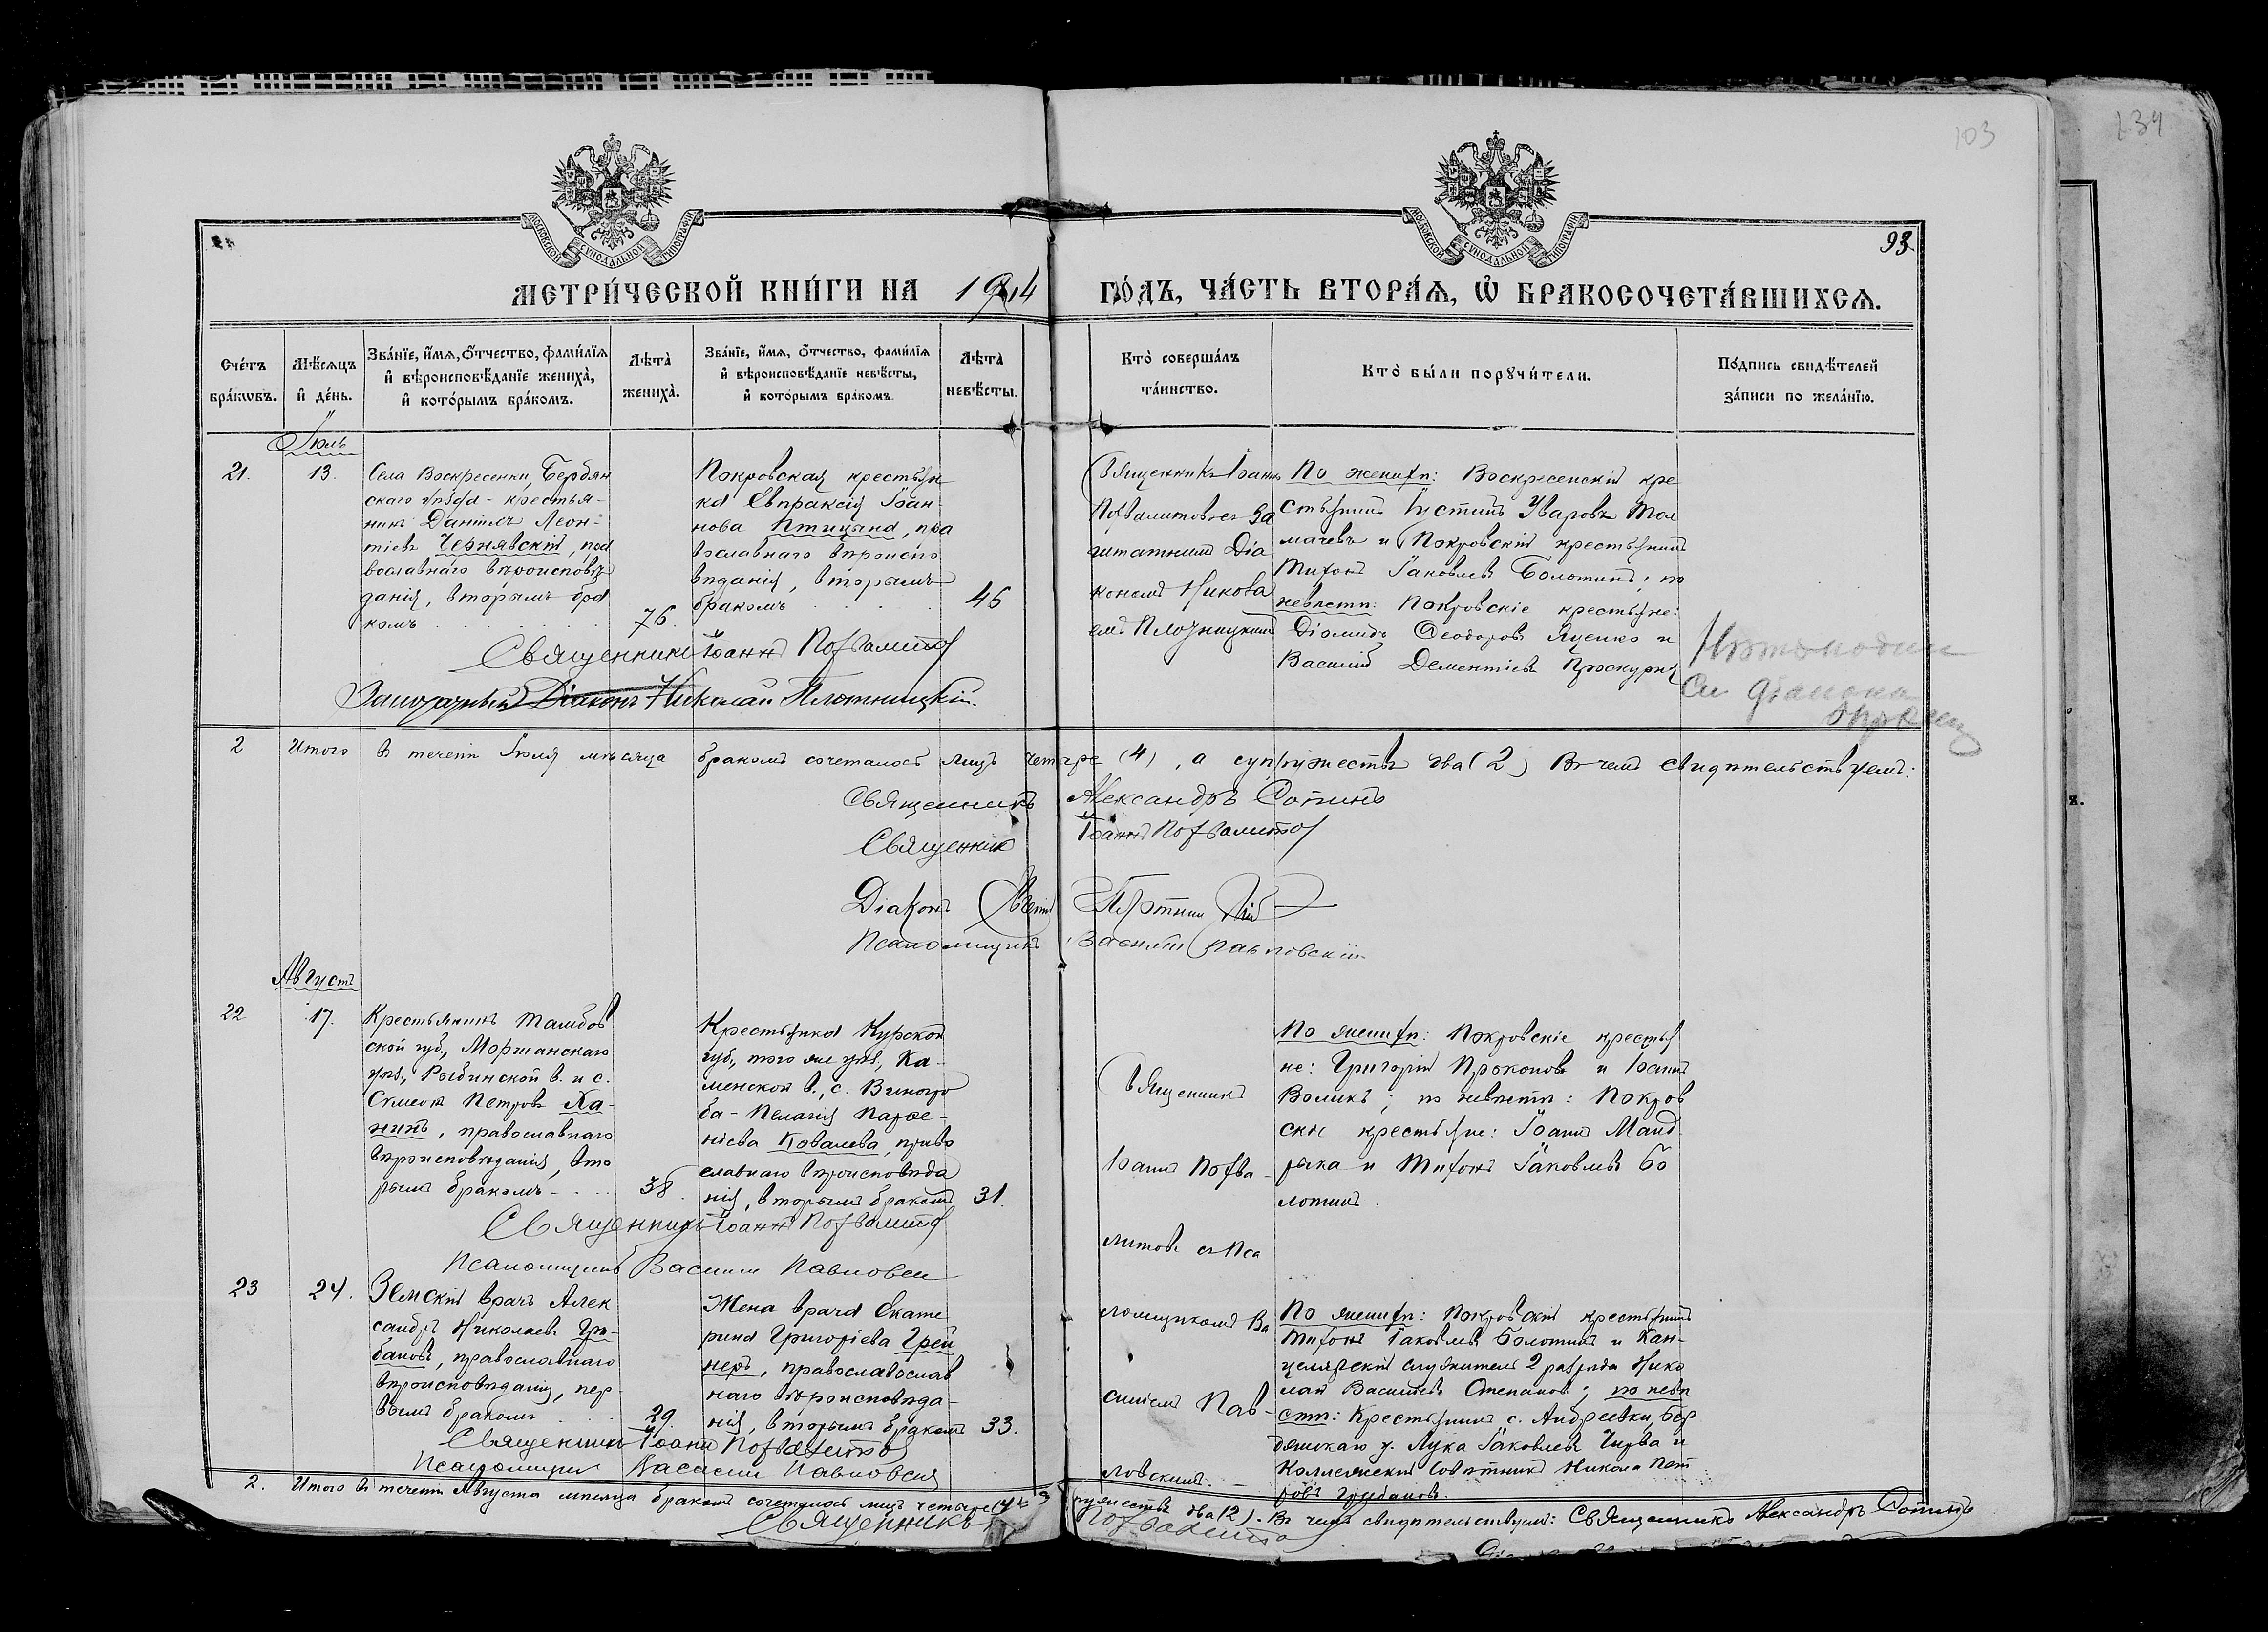 103
134
МОСКОВСКОЙ СУНОДАЛЬНОЙ ТИПОГРАФІИ
МОСКОВСКОЙ СУНОДАЛЬНОЙ ТИПОГРАФІИ
93
МЕТРИ́ЧЕСКОЙ КНИ́ГИ НА 1914 ГО́ДЪ, ЧА́СТЬ ВТОРА́Ѧ, Ѽ БРАКОСОЧЕТА́ВШИХСѦ.
Сче́тъ бра́кѡвъ.
Мѣ́сѧцъ и де́нь.
Зва́нїе, и́мѧ, ѻ́тчество, фами́лїѧ и вѣроисповѣ́данїе жениха̀, и кото́рымъ бра́комъ.
Лѣта̀ жениха̀.
Зва́нїе, и́мѧ, ѻ́тчество, фами́лїѧ и вѣроисповѣ́данїе невѣ́сты, и кото́рымъ бра́комъ.
Лѣта̀ невѣ́сты.
Кто̀ соверша́лъ та́инство.
Кто̀ бы́ли порꙋчи́тели.
По́дпись свидѣ́телей за́писи по жела́нїю.
Іюль
21.
13.
Села Воскресенки, Бердян
скаго уѣзда - крестья-
нинъ Даніилъ Леон-
тіевъ Чернявскій, пра
вославнаго вѣроисповѣ
данія, вторымъ бра
комъ
76.
Покровская крестьян
ка Евпраксія Іоан-
нова Птицына, пра
вославнаго вѣроиспо
вѣданія, вторымъ
бракомъ
46
Священникъ Іоаннъ
Похвалитовъ съ За
штатнымъ Діа
кономъ Никола
емъ Плотницкимъ
По женихѣ: Воскресенскій кре
стьянинъ Іустинъ Уваровъ Тол
мачевъ и Покровскій крестьянинъ
Тихонъ Іаковлевъ Болотинъ; по
невѣстѣ: Покровскіе крестьяне:
Діомидъ Ѳеодоровъ Яценко и
Василій Дементіевъ Проскурня
Священникъ Іоаннъ Похвалитовъ
Заштатный Діаконъ Николай Плотницкій.
2 Итого въ теченіи Іюля мѣсяца бракомъ сочеталось лицъ четыре (4), а супружествъ два (2) Въ чемъ свидѣтельствуемъ:
Священникъ Александръ Сопинъ
Священникъ Іоаннъ Похвалитовъ
Діаконъ
Псаломщикъ Василій Павловскій
Августъ
22
17.
Крестьянинъ Тамбов
ской губ., Моршанскаго
уѣз., Рыбинской в. и с.
Симеонъ Петровъ Ха-
нинъ, православнаго
вѣроисповѣданія, вто
рымъ бракомъ
38.
Крестьянка Курской
губ., того же уѣз., Ка-
менской в., с. Виногро
ба - Пелагія Парѳе-
ніева Ковалева, право
славнаго вѣроисповѣда
нія, вторымъ бракомъ
31.
Священникъ
Іоаннъ Похва-
литовъ съ Пса
ломщикомъ Ва
силіемъ Пав-
ловскимъ.
По женихѣ: Покровскіе крестья
не: Григорій Прокоповъ и Іоаннъ
Воликъ; по невѣстѣ: Покров
скіе крестьяне: Іоаннъ Манд
рыка и Тихонъ Іаковлевъ Бо
лотинъ.
Священникъ Іоаннъ Похвалитовъ
Псаломщикъ Василій Павловскій
23
24.
Земскій врачъ Алек
сандръ Николаевъ Гры-
бановъ, православнаго
вѣроисповѣданія, пер-
вымъ бракомъ
29.
Жена врача Екате
рина Григоріева Грей
неръ, православослав
наго вѣроисповѣда-
нія, вторымъ бракомъ
33.
По женихѣ: Покровскій крестьянинъ
Тихонъ Іаковлевъ Болотинъ и Кан-
целярскій служитель 2 разряда Нико
лай Васильевъ Степановъ; по невѣ
стѣ: Крестьянинъ с. Андреевки, Бер
дянскаго у. Лука Іаковлевъ Чирва и
Коллежскій Совѣтникъ Никола Пет
ровъ Грыбановъ.
Священникъ Іоаннъ Похвалитовъ
Псаломщикъ Василій Павловскій
2. Итого въ теченіи Августа мѣсяца бракомъ сочеталось лицъ четыре (4), а супружествъ два (2). Въ чемъ свидѣтельствуемъ: Священникъ Александръ Сопинъ
Священникъ Похвалитовъ